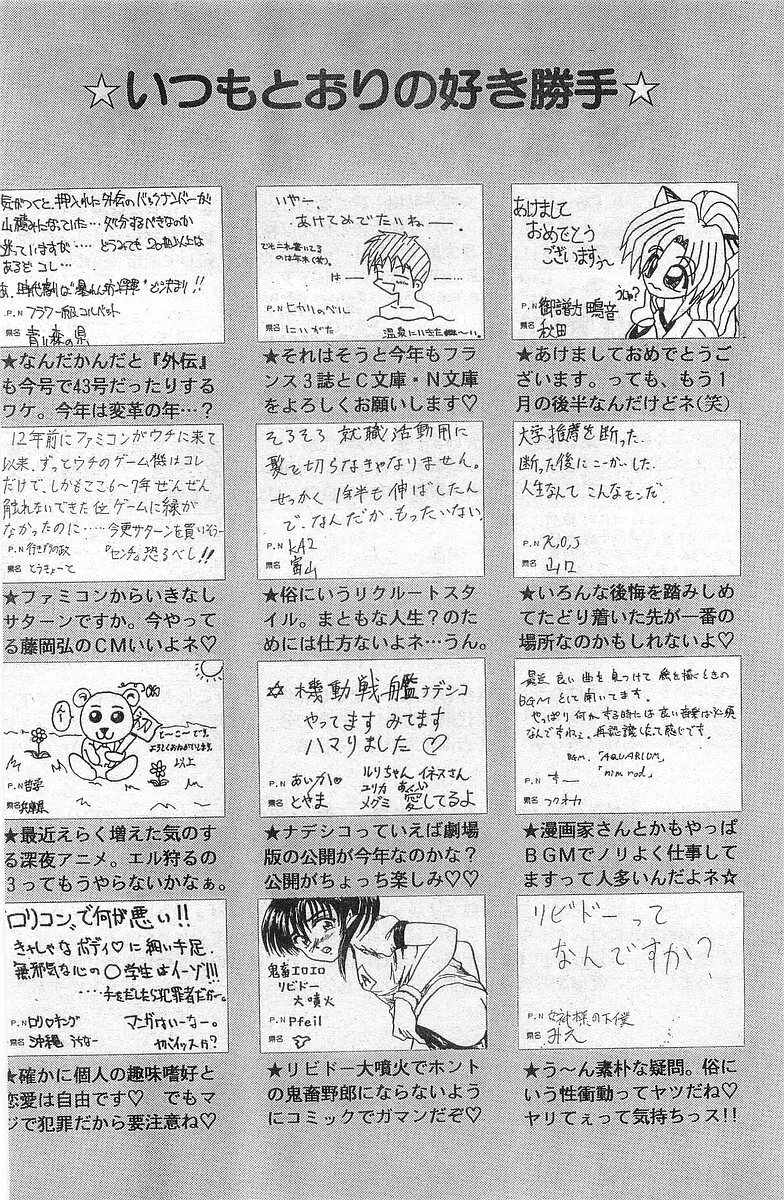 ☆いつもとおりの好き勝手☆
あけまして
おめでとう
ございますぅ〜
うにゅ?
P.N 御諸方鴨音
県名 秋田
★あけましておめでとうご
ざいます。っても、もう1
月の後半なんだけどネ(笑)
いやー、
あけてめでたいねー。
でもこれ書いてる
のは年末(笑)。
はー
P.N ヒカリのベル
県名 にいがた
温泉にいきたい〜い。
★それはそうと今年もフラ
ンス3誌とC文庫・N文庫
をよろしくお願いします♡
気がつくと、押入れに外伝のバックナンバーが
山積みになっていた…処分するべきなのか
迷っていますが‥‥どうみても20冊以上は
あるぞコレ…
P.N フラワー級コルベット
県名 青い森の県
★なんだかんだと『外伝』
も今号で43号だったりする
ワケ。今年は変革の年…?
大学推薦を断った。
断った後にこーかいした。
人生なんてこんなモンだ。
P.N K,O,J
県名 山口
★いろんな後悔を踏みしめ
てたどり着いた先が一番の
場所なのかもしれないよ♡
そろそろ就職活動用に
髪を切らなきゃなりません。
せっかく1年半も伸ばしたん
で、なんだかもったいない。
P.N KAZ
県名 富山
★俗にいうリクルートスタ
イル。まともな人生?のた
めには仕方ないよネ…うん。
12年前にファミコンがウチに来て
以来、ずっとウチのゲーム機はコレ
だけで、しかもここ6〜7年ぜんぜん
触れないできた位ゲームに縁が
なかったのに‥‥今更サターンを買いそう…
P.N 行きずりの政
『センチ』恐るべし!!
県名 とうきょーと
★ファミコンからいきなし
サターンですか。今やって
る藤岡弘のCMいいよネ♡
最近良い曲を見つけて絵を描くときの
BGMとして聞いてます。
やっぱり何かする時には良い音楽は必須
なんですねぇ。再認識したって感じです。
BGM.「AQUARIUM」
「nim rod」
P.N ちー
県名 フクオカ
★漫画家さんとかもやっぱ
BGMでノリよく仕事して
ますって人多いんだよネ☆
☆機動戦艦ナデシコ
やってます みてます
ハマりました♡
P.N あいか
県名 とやま
ルリちゃん イネスさん
ユリカ
メグミ 愛してるよ
★ナデシコっていえば劇場
版の公開が今年なのかな?
公開がちょっち楽しみ♡♡
初
よろしくおねがいします。
以上
P.N 哲学
県名 兵庫県
★最近えらく増えた気のす
る深夜アニメ。エル狩るの
3ってもうやらないかなぁ。
リビドーって
なんですか?
P.N 女神様の下僕
県名 みえ
★う〜ん素朴な疑問。俗に
いう性衝動ってヤツだね♡
ヤリてぇって気持ちっス!!
鬼畜エロエロ
リビドー
大噴火
P.N Pfeil
県名
★リビドー大噴火でホント
の鬼畜野郎にならないよう
にコミックでガマンだぞ♡
「ロリコン」で何が悪い!!
きゃしゃなボディ♡に細い手足、
無邪気な心の○学生はイーゾ!!!
‥‥手をだしたら犯罪者だがー。
P.N ロリ♡キング
マンガはいーなー。
県名 沖縄 うちなー
ヤバイッスか?
★確かに個人の趣味嗜好と
恋愛は自由です♡ でもマ
ジで犯罪だから要注意ね♡